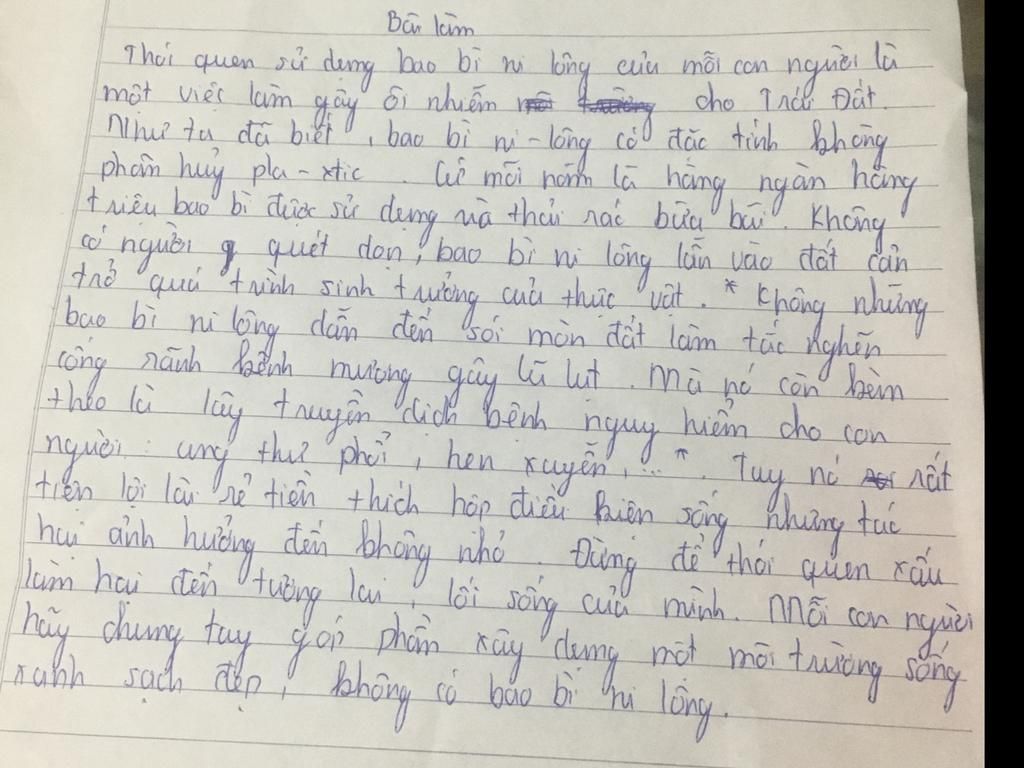 Bài làm
Thói quen sử dụng bao bì ni lông của mỗi con người là
một việc làm gây ôi nhiễm cho Trái Đất.
Như ta đã biết, bao bì ni-lông có đặc tính không
phân huỷ pla-xtic. Cứ mỗi năm là hàng ngàn hàng
triệu bao bì được sử dụng và thải rác bừa bãi. Không
có người quét dọn, bao bì ni lông lẫn vào đất cản
trở quá trình sinh trưởng của thực vật. * Không những
bao bì ni lông dẫn đến sói mòn đất làm tắc nghẽn
cống rãnh kênh mương gây lũ lụt. Mà nó còn kèm
theo là lây truyền dịch bệnh nguy hiểm cho con
người: ung thư phổi, hen xuyễn,... *. Tuy nó rất
tiện lợi lài rẻ tiền thích hợp điều kiện sống nhưng tác
hại ảnh hưởng đến không nhỏ. Đừng để thói quen xấu
làm hại đến tương lai, lối sống của mình. Mỗi con người
hãy chung tay góp phần xây dựng một môi trường sống
xanh sạch đẹp, không có bao bì ni lông.